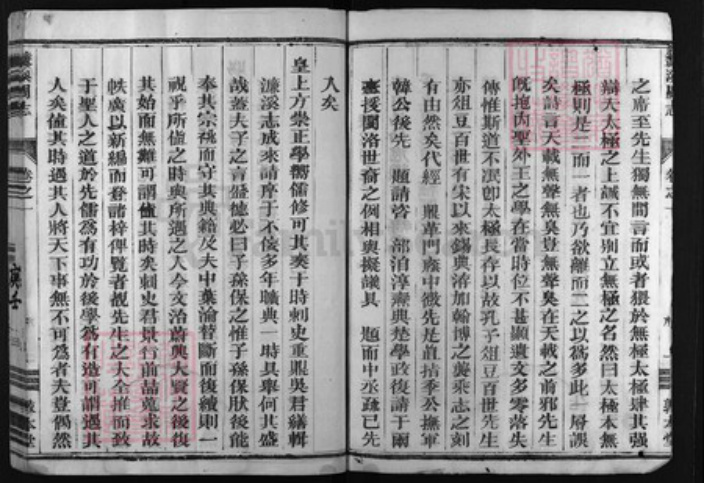 之席至先生獨無間言而或者猥於無極太極肆其強
辯夫太極之上誠不宜別立無極之名然曰太極本無
極則是二而一者也乃欲離而二之以為多此一層誤
矣詩言天載無聲無臭豈無聲臭在天載之前邪先生
既抱內聖外王之學在當時位不甚顯遺文多零落失
傳惟斯道不泯卽太極長存以故孔子俎豆百世先生
亦俎豆百世有宋以來錫典洊加翰博之襲乘志之刻
有由然矣代經 鼎革門廕中微先是直指季公撫軍
韓公後先 題請啓 部洎淳燾典楚學政復請于兩
臺援閩洛世裔之例相與擬議具 題而中丞疏已先
入矣
皇上方崇正學嚮儒修可其奏于時刺史重眼吳君繕輯
濂溪志成來請序于不佞多年曠典一時具舉何其盛
哉蓋夫子之言盛德必曰子孫保之惟子孫保狀後能
奉其宗祧而守其典籍及夫中葉淪替斷而復續則一
視乎所值之時與所遇之人今文治蔚興大賢之後復
其始而無難可謂值其時矣刺史君景行前喆蒐求故
帙廣以新編而登諸梓俾覽者覩先生之大全推而致
于聖人之道於先儒為有功於後學為有造可謂遇其
人矣值其時遇其人將天下事無不可為者夫豈偶然
濂溪周志
卷之一
敦本堂